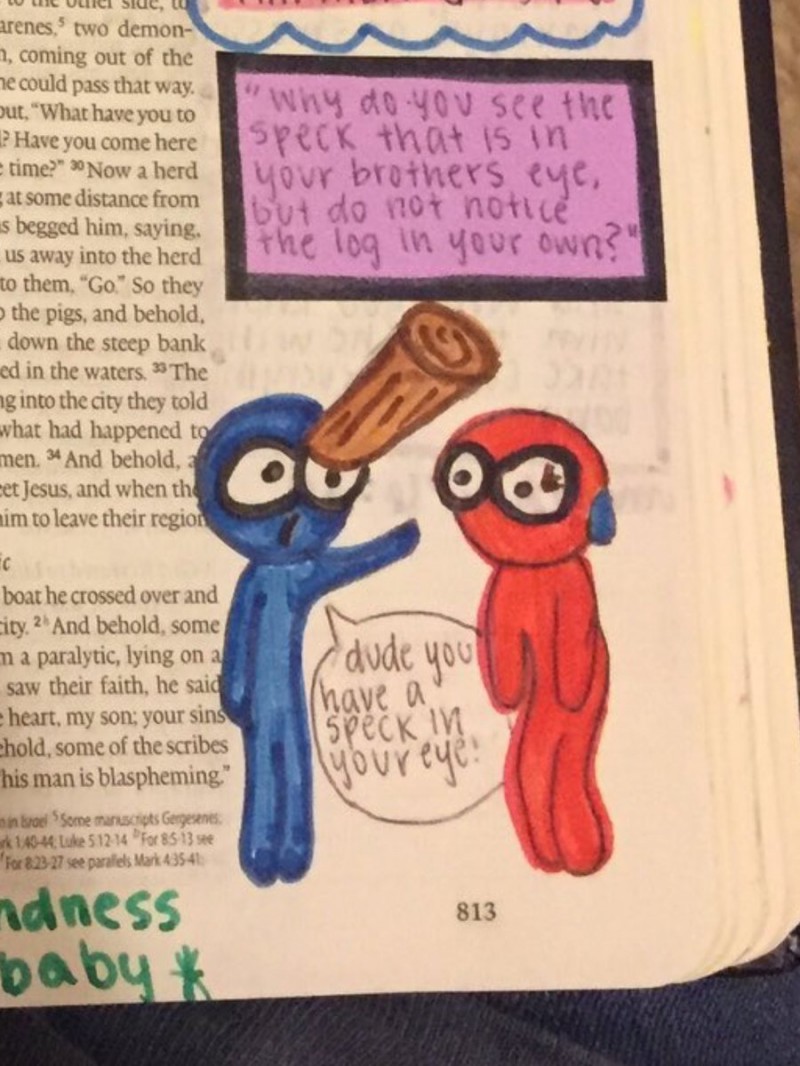 to the other side, to
arenes,⁵ two demon-
, coming out of the
e could pass that way.
out, “What have you to
? Have you come here
time?” ³⁰Now a herd
at some distance from
s begged him, saying,
us away into the herd
to them, “Go.” So they
the pigs, and behold,
down the steep bank
ed in the waters. ³³The
ng into the city they told
what had happened to
men. ³⁴And behold, a
eet Jesus, and when the
him to leave their region
ic
boat he crossed over and
city. ² And behold, some
m a paralytic, lying on a
saw their faith, he said
heart, my son; your sins
ehold, some of the scribes
his man is blaspheming.”
n in Israel ⁵Some manuscripts Gergesenes;
rk 1:40-44; Luke 5:12-14 For 8:5-13 see
For 8:23-27 see parallels Mark 4:35-41;
"Why do you see the
speck that is in
your brothers eye,
but do not notice
the log in your own?"
dude you
have a
speck in
your eye!
ndness
baby
813